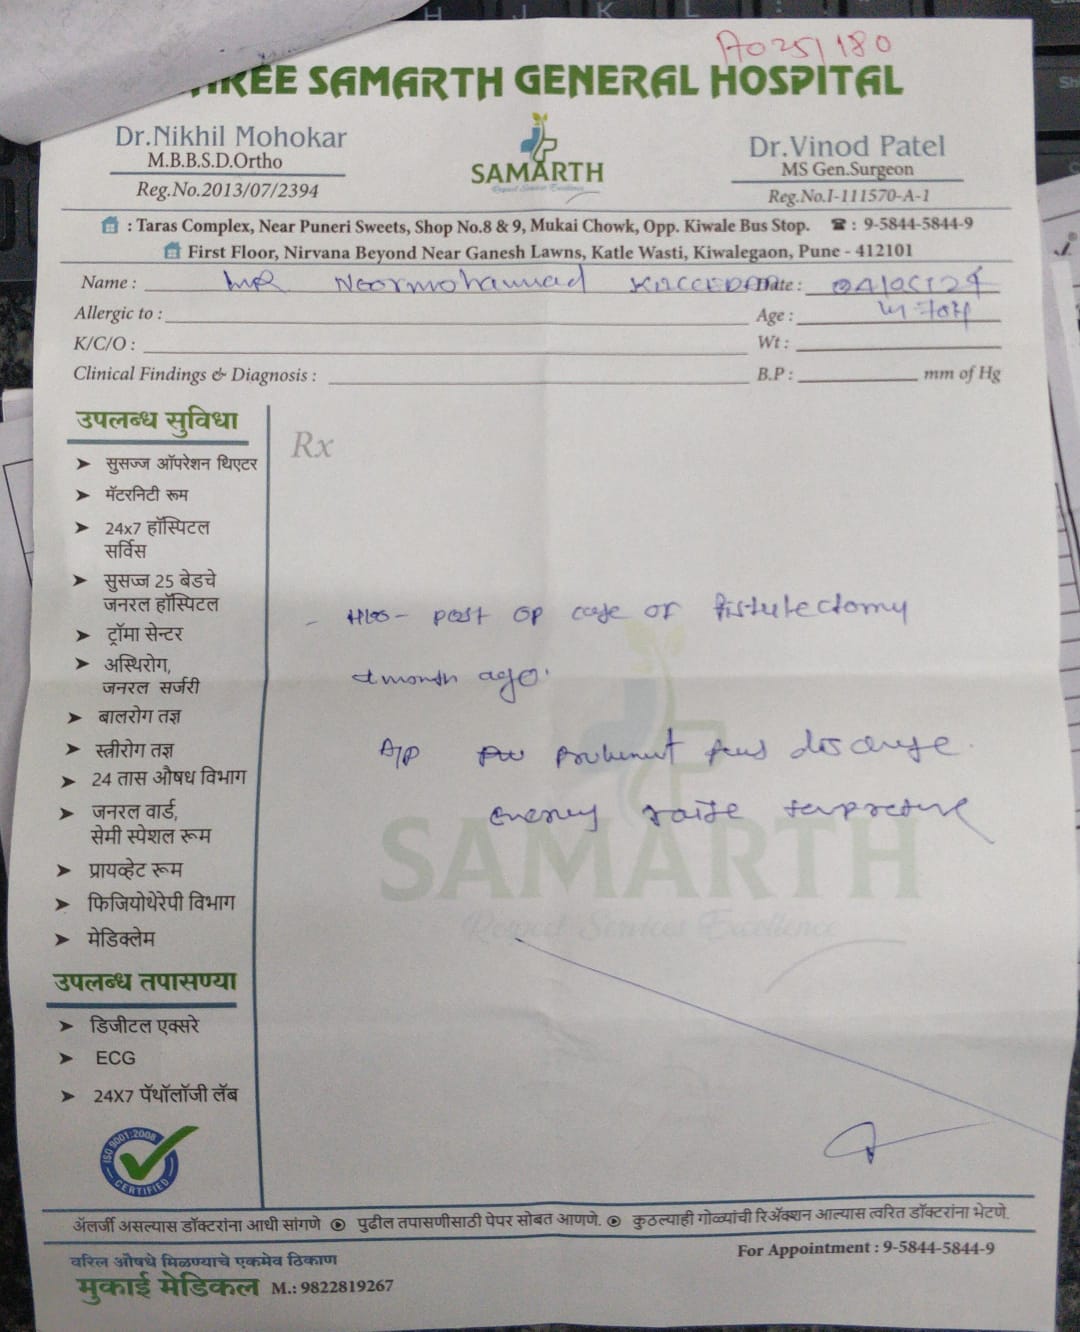 A025/180
SHREE SAMARTH GENERAL HOSPITAL
Dr.Nikhil Mohokar
M.B.B.S.D.Ortho
Reg.No.2013/07/2394
SAMARTH
Respect Services Excellence
Dr.Vinod Patel
MS Gen.Surgeon
Reg.No.I-111570-A-1
: Taras Complex, Near Puneri Sweets, Shop No.8 & 9, Mukai Chowk, Opp. Kiwale Bus Stop. ☎ : 9-5844-5844-9
First Floor, Nirvana Beyond Near Ganesh Lawns, Katle Wasti, Kiwalegaon, Pune - 412101
Name : MR Noormohammad Date :
Allergic to : Age :
K/C/O : Wt :
Clinical Findings & Diagnosis : B.P : mm of Hg
उपलब्ध सुविधा
➤ सुसज्ज ऑपरेशन थिएटर
➤ मॅटरनिटी रूम
➤ 24x7 हॉस्पिटल
सर्विस
➤ सुसज्ज 25 बेडचे
जनरल हॉस्पिटल
➤ ट्रॉमा सेन्टर
➤ अस्थिरोग,
जनरल सर्जरी
➤ बालरोग तज्ञ
➤ स्त्रीरोग तज्ञ
➤ 24 तास औषध विभाग
➤ जनरल वार्ड,
सेमी स्पेशल रूम
➤ प्रायव्हेट रूम
➤ फिजियोथेरेपी विभाग
➤ मेडिक्लेम
उपलब्ध तपासण्या
➤ डिजीटल एक्सरे
➤ ECG
➤ 24X7 पॅथॉलॉजी लॅब
ISO 9001:2008
CERTIFIED
Rx
- H/o - post op case of fistulectomy
month ago.
pus
raise
SAMARTH
Respect Services Excellence
ॲलर्जी असल्यास डॉक्टरांना आधी सांगणे ⊙ पुढील तपासणीसाठी पेपर सोबत आणणे. ⊙ कुठल्याही गोळ्यांची रिॲक्शन आल्यास त्वरित डॉक्टरांना भेटणे.
वरिल औषधे मिळण्याचे एकमेव ठिकाण
मुकाई मेडिकल M.: 9822819267
For Appointment : 9-5844-5844-9